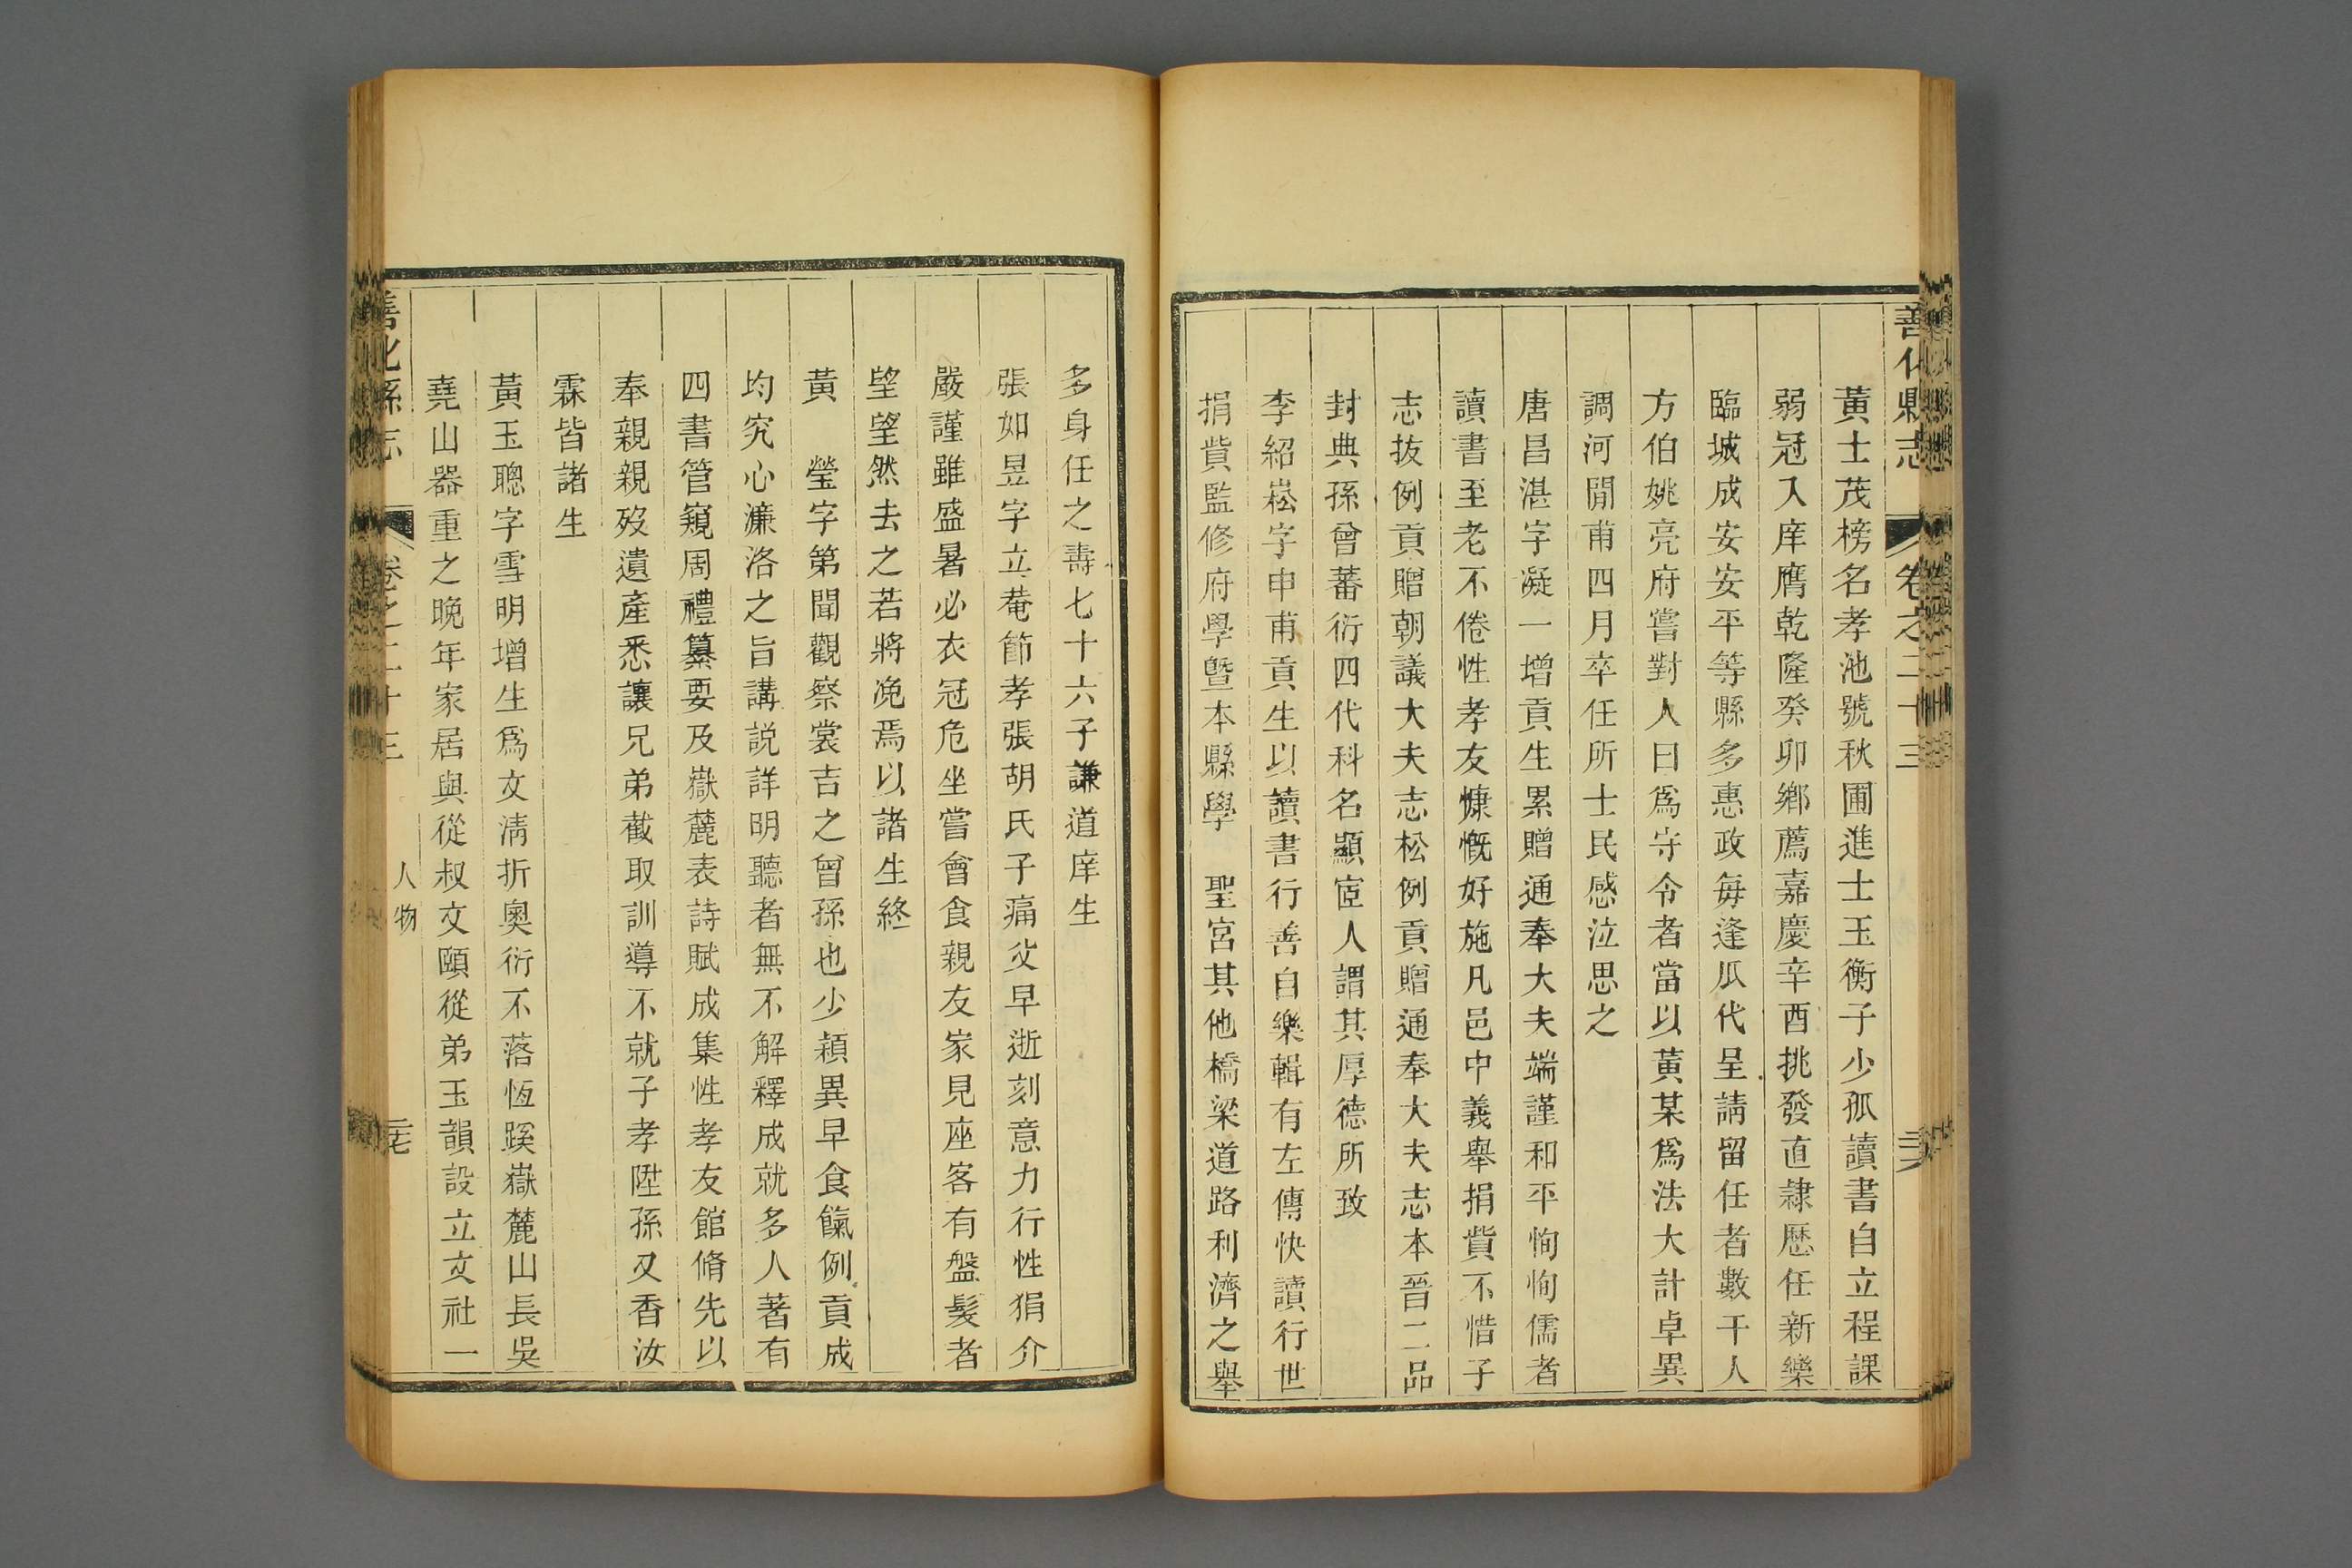 善化縣志 卷之二十三
黃士茂榜名孝池號秋圃進士玉衡子少孤讀書自立程課
弱冠入庠膺乾隆癸卯鄉薦嘉慶辛酉挑發直隸歷任新樂
臨城成安安平等縣多惠政每逢瓜代呈請留任者數千人
方伯姚亮府嘗對人曰爲守令者當以黃某爲法大計卓異
調河間甫四月卒任所士民感泣思之
唐昌湛字凝一增貢生累贈通奉大夫端謹和平恂恂儒者
讀書至老不倦性孝友慷慨好施凡邑中義舉捐貲不惜子
志抜例貢贈朝議大夫志松例貢贈通奉大夫志本晉二品
封典孫曾蕃衍四代科名顯宦人謂其厚德所致
李紹崧字申甫貢生以讀書行善自樂輯有左傳快讀行世
捐貲監修府學曁本縣學 聖宮其他橋梁道路利濟之舉
多身任之壽七十六子謙道庠生
張如昱字立菴節孝張胡氏子痛父早逝刻意力行性狷介
嚴謹雖盛暑必衣冠危坐嘗會食親友家見座客有盤髮者
望望然去之若將凂焉以諸生終
黃 瑩字第聞觀察裳吉之曾孫也少穎異早食餼例貢成
均究心濂洛之旨講説詳明聽者無不解釋成就多人著有
四書管窺周禮纂要及嶽麓表詩賦成集性孝友館脩先以
奉親親歿遺產悉讓兄弟截取訓導不就子孝陞孫又香汝
霖皆諸生
黃玉聰字雪明增生爲文淸折奧衍不落恆蹊嶽麓山長吳
堯山器重之晚年家居與從叔文頤從弟玉韻設立文社一
善化縣志 卷之二十三 人物